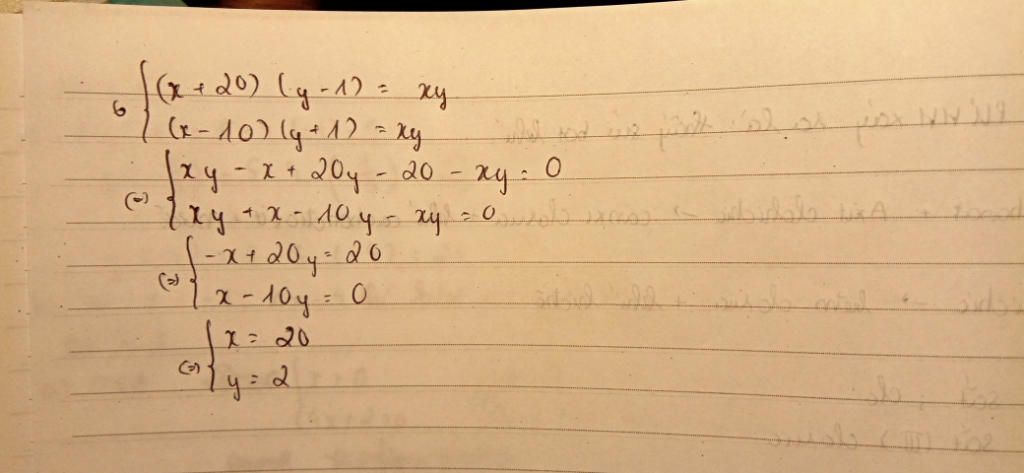 6 { (x + 20) (y - 1) = xy
(x - 10) (y + 1) = xy
(=) { xy - x + 20y - 20 - xy = 0
xy + x - 10y - xy = 0
(=) { -x + 20y = 20
x - 10y = 0
(=) { x = 20
y = 2